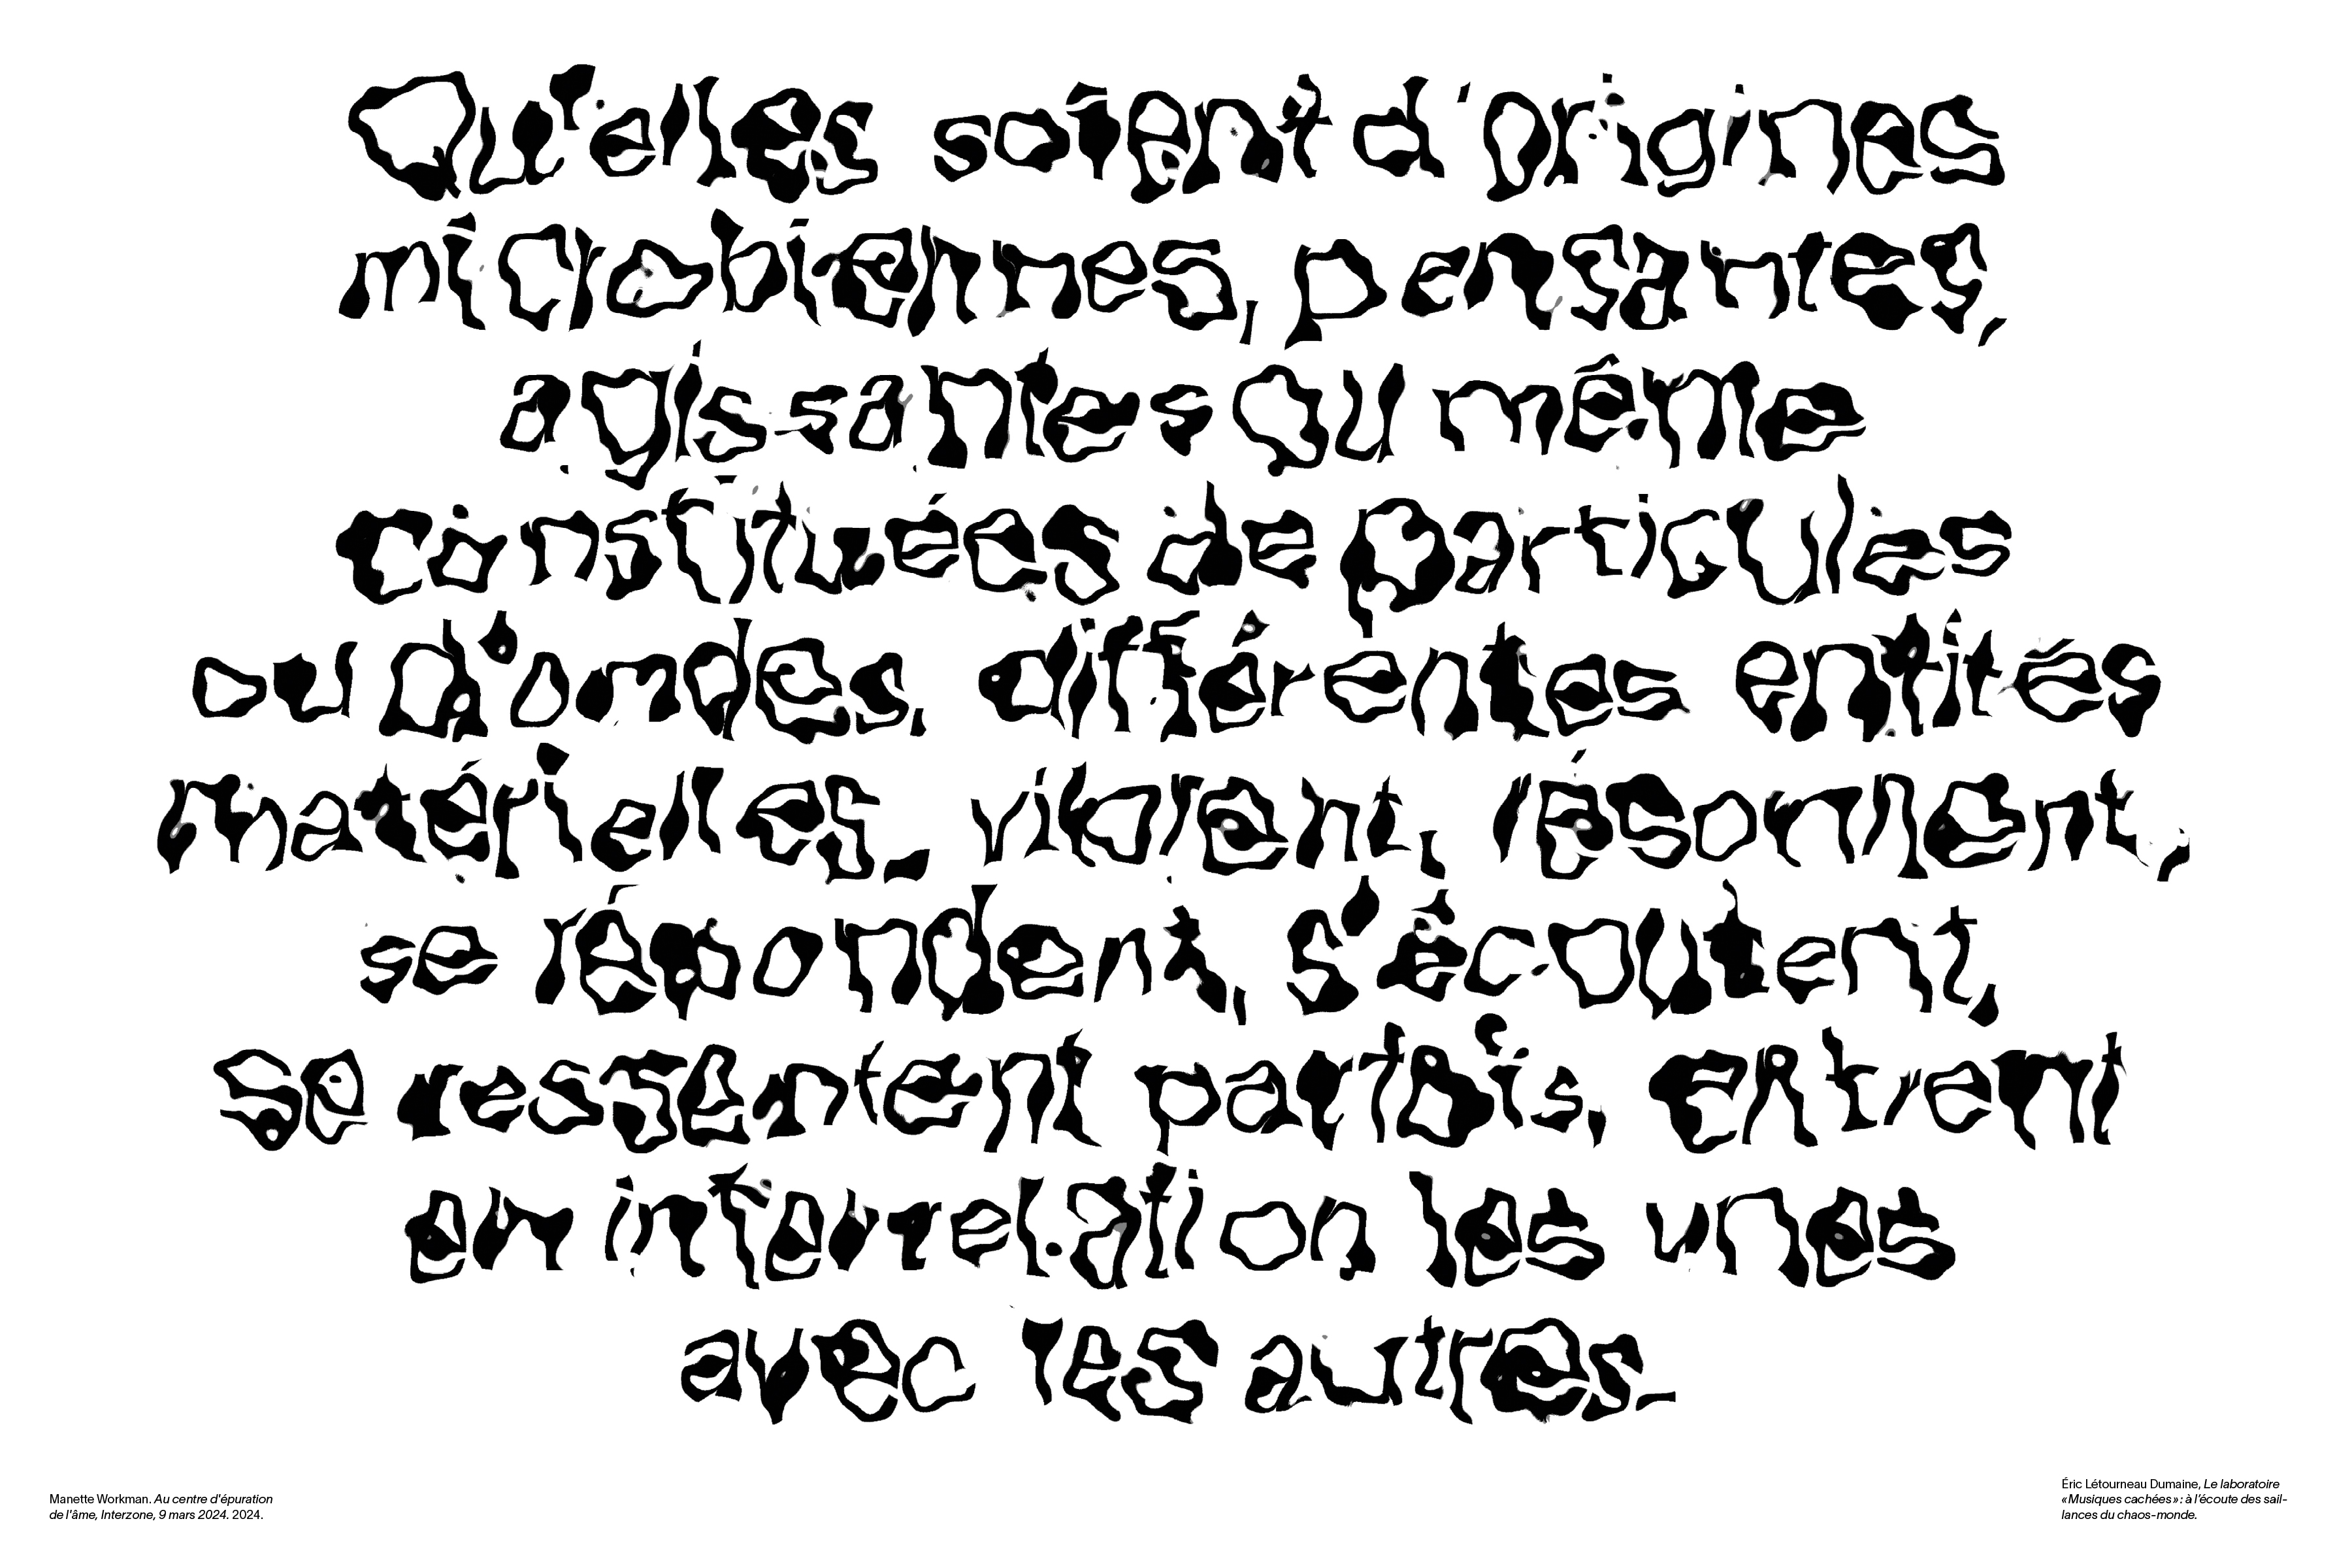 Qu'elles soient d'origines
machiniennes, pensantes,
agissantes ou même
constituées de particules
ou d'ondes, différentes entités
matérielles, vibrent, résonnent,
se répondent, s'écoutent,
se ressentent parfois, entrent
en interrelation les unes
avec les autres.
Manette Workman. Au centre d'épuration
de l'âme, Interzone, 9 mars 2024. 2024.
Éric Létourneau Dumaine, Le laboratoire
«Musiques cachées» : à l'écoute des sail-
lances du chaos-monde.